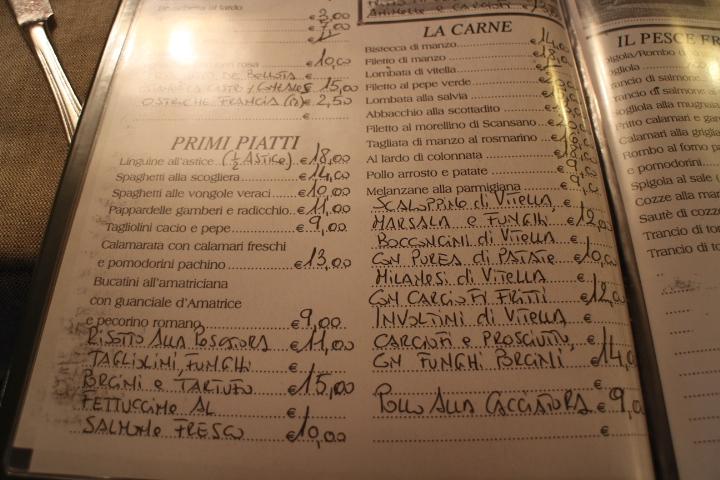 €3,00
€7,00
€
€10,00
€15,00
OSTRICHE FRANCIA €2,50
€
PRIMI PIATTI
Linguine all'astice (½ ASTICE) €18,00
Spaghetti alla scogliera €14,00
Spaghetti alle vongole veraci €10,00
Pappardelle gamberi e radicchio €11,00
Tagliolini cacio e pepe €9,00
Calamarata con calamari freschi
e pomodorini pachino €13,00
Bucatini all'amatriciana
con guanciale d'Amatrice
e pecorino romano €9,00
RISOTTO ALLA PESCATORA €11,00
TAGLIOLINI, FUNGHI €
PORCINI e TARTUFO €15,00
FETTUCCINE AL €
SALMONE FRESCO €10,00
ANIMELLE e CARCIOFI
LA CARNE
Bistecca di manzo
Filetto di manzo
Lombata di vitella
Filetto al pepe verde
Lombata alla salvia
Abbacchio alla scottadito
Filetto al morellino di Scansano
Tagliata di manzo al rosmarino
Al lardo di colonnata
Pollo arrosto e patate
Melanzane alla parmigiana
SCALOPPINE di VITELLA, €
MARSALA e FUNGHI €12,00
BOCCONCINI di VITELLA €
CON PUREA di PATATE €10,00
MILANESI di VITELLA €
CON CARCIOFI FRITTI €12,00
INVOLTINI di VITELLA €
CARCIOFI e PROSCIUTTO, €
CON FUNGHI PORCINI €14,0
€
POLLO ALLA CACCIATORA €9,0
€
IL PESCE FR
Rombo
di salmone
di salmone
alla mugnaia
Fritto calamari e gam
Calamari alla griglia
Rombo al forno
e pomodorini
Spigola al sale
Cozze alla mar
Sautè di cozz
Trancio di ton
Trancio di to